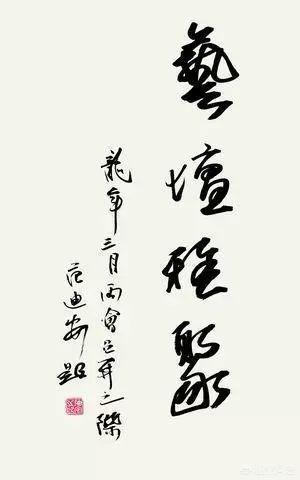 藝壇雅聚
龍年三月兩會召開之際
范迪安題